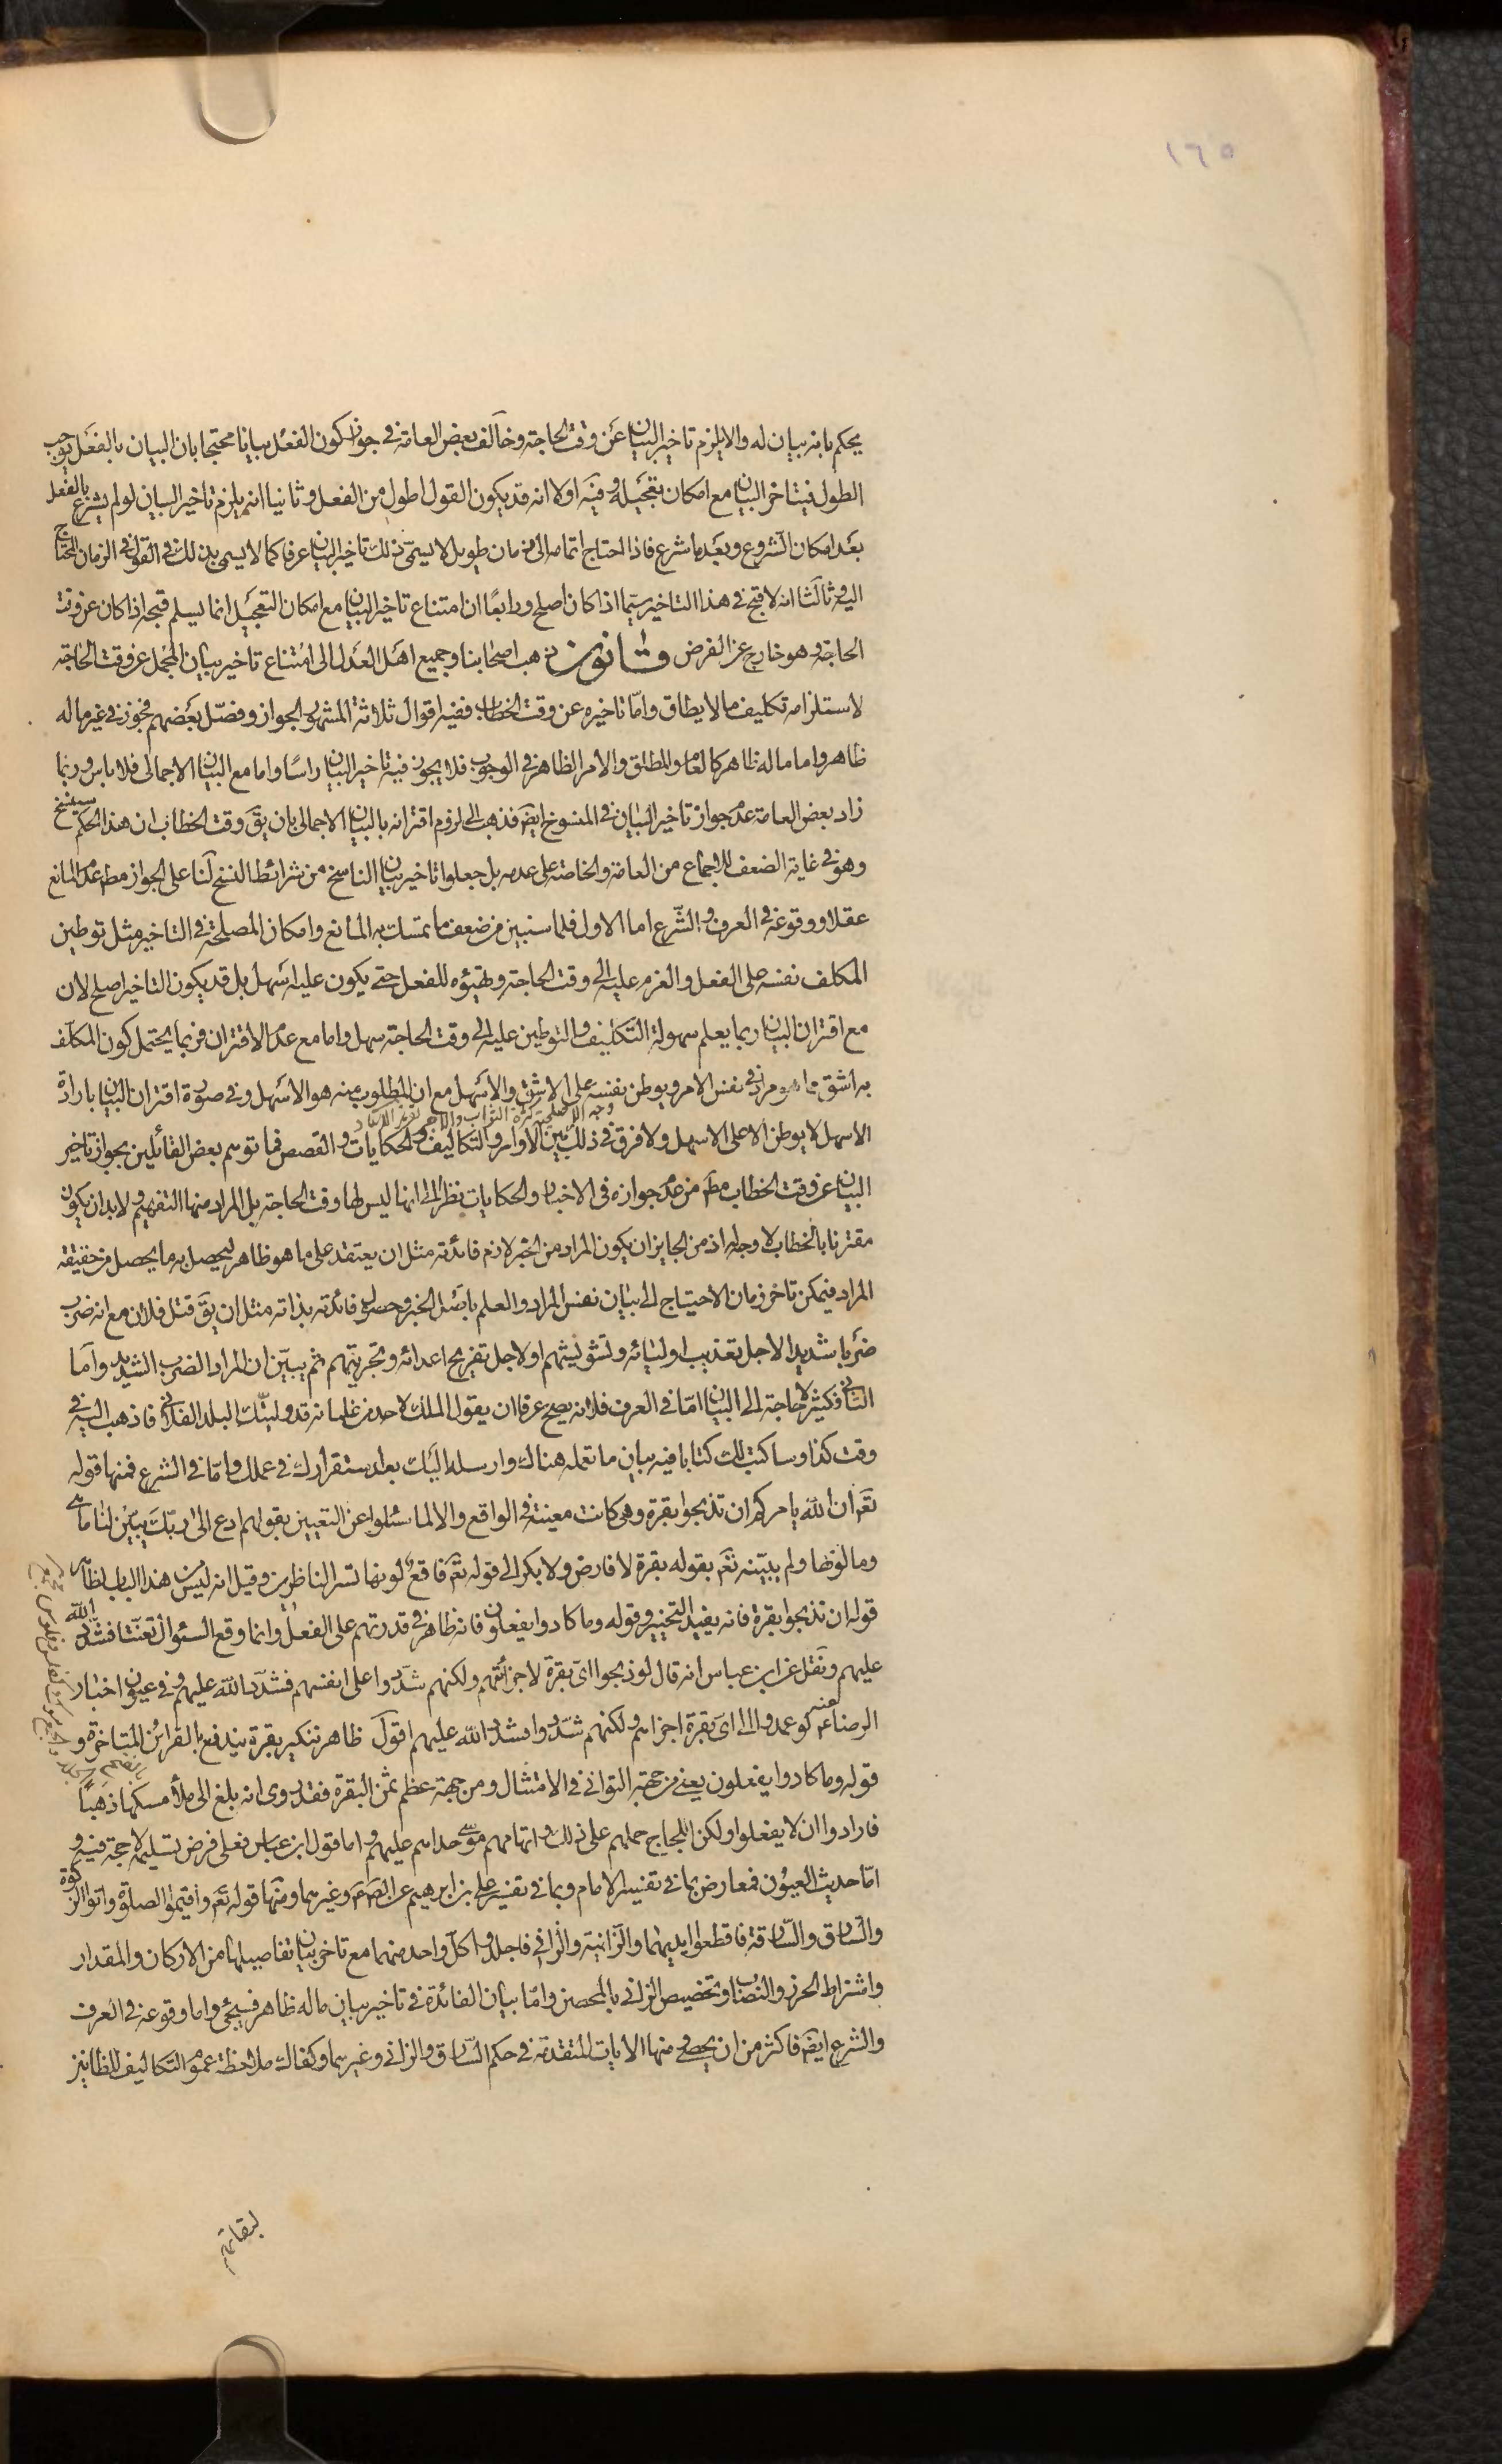 ١٦٥
يحكم بانه بيان له والا يلزم تاخير البيان عن وقت الحاجة وخالف بعض العامة في جواز كون الفعل بيانا محتجا بان البيان بالفعل يوجب
الطول فيتاخر البيان مع امكان تعجيله وفيه اولا انه قد يكون القول اطول من الفعل وثانيا انه يلزم تاخير البيان لو لم يشرع بالفعل
بعد امكان الشروع وبعد ما شرع فاذا احتاج اتمامه الى زمان طويل لا يسمى ذلك تاخير البيان عرفا كما لا يسمى بذلك في القول في الزمان المحتاج
اليه وثالثا انه لا قبح في هذا التاخير سيما اذا كان اصلح ورابعا ان امتناع تاخير البيان مع امكان التعجيل انما يسلم قبحه اذا كان عن وقت
الحاجة وهو خارج عن الفرض قانون ذهب اصحابنا وجميع اهل العدل الى امتناع تاخير بيان المجمل عن وقت الحاجة
لاستلزامه تكليف ما لا يطاق وامّا تاخيره عن وقت الخطاب ففيه اقوال ثلاثة المشهور الجواز وفصّل بعضهم فجوز في غير ما له
ظاهر واما ما له ظاهر كالعام والمطلق والامر الظاهر في الوجوب فلا يجوز فيه تاخير البيان راسًا واما مع البيان الاجمالي فلا باس وربما
زاد بعض العامة عدم جواز تاخير البيان في المنسوخ ايضَ فذهب الى لزوم اقترانه بالبيان الاجمالي بان يقَ وقت الخطاب ان هذا الحكم سينسخ
وهو في غاية الضعف للاجماع من العامة والخاصة على عدمه بل جعلوا تاخير بيان الناسخ من شرائط النسخ لنا على الجواز مطم عدم المانع
عقلا ووقوعه في العرف والشّرع اما الاول فلما سنبين من ضعف ما تمسك به المانع وامكان المصلحة في التاخير مثل توطين
المكلف نفسه على الفعل والعزم عليه الى وقت الحاجة وتهيئوه للفعل حتى يكون عليه اسهل بل قد يكون التاخير اصلح لان
مع اقتران البيان ربما يعلم سهولة التكليف والتوطين عليه الى وقت الحاجة سهل واما مع عدم الاقتران فربما يحتمل كون المكلّف
به اشق مما هو مراد في نفس الامر ويوطن نفسه على الاشق والاسهل مع ان المطلوب منه هو الاسهل وفي صورة اقتران البيان بارادة
الاسهل لا يوطن الا على الاسهل ولا فرق في ذلك بين الاوامر والتكاليف والحكايات والقصص فما توهم بعض القائلين بجواز تاخير
البيان عن وقت الخطاب مطم من عدم جوازه في الاخبار والحكايات نظرا الى انها ليس لها وقت الحاجة بل المراد منها التفهيم ولا بد ان يكون
مقترنا بالخطاب لا وجه له اذ من الجايز ان يكون المراد من الخبر لازم فائدته مثل ان يعتقد على ما هو ظاهر ليحصل به ما يحصل من حقيقة
المراد فيمكن تاخر زمان الاحتياج الى بيان نفس المراد والعلم باصل الخبر وحصول فائدته بذاته مثل ان يقَ قتل فلان مع انه ضرب
ضربا شديدا لاجل تعذيب اوليائه وتشويشهم او لاجل تفريح اعدائه وتجريتهم ثم يبيّن ان المراد الضرب الشديد وامّا
الثاني فكثير لا حاجة الى البيان امّا في العرف فلانه يصح عرفا ان يقول الملك لاحد من غلمانه قد وليتك البلد الفلاني فاذهب اليه في
وقت كذا وساكتب لك كتابا فيه بيان ما تعمله هناك وارسله اليك بعد استقرارك في عملك وامّا في الشرع فمنها قوله
تعَم ان الله يامركم ان تذبحوا بقرة وهي كانت معينة في الواقع والا لما سئلوا عن التعيين بقولهم ادع الى ربّك يبيّن لنا ما هي
وما لونها ولم يبيّنه تعَم بقوله بقرة لا فارض ولا بكر الى قوله تعَم فاقع لونها تسر الناظرين وقيل انه ليس من هذا الباب لظاهر
قوله ان تذبحوا بقرة فانه يفيد التخيير وقوله وما كادوا يفعلون فانه ظاهر في قدرتهم على الفعل وانما وقع السئوال تعنّتا فشدّد الله
عليهم ونقل عن ابن عباس انه قال لو ذبحوا ايّ بقرة لاجزأتهم ولكنهم شدّدوا على انفسهم فشدّد الله عليهم وفي عيون اخبار
الرضا عم لو عمدوا الى اىّ بقرة اجزاهم ولكنهم شدّدوا فشدد الله عليهم اقول ظاهر تنكير بقرة يندفع بالقرائن المتاخرة و
قوله وما كادوا يفعلون يعني من جهة التواني في الامتثال ومن جهة عظم ثمن البقرة فقد روى انه بلغ الى ملأ مسكها ذهبًا
فارادوا ان لا يفعلوا ولكن اللجاج حملهم على ذلك واتهامهم موسى حداهم عليه واما قول ابن عباس فعلى فرض تسليمه لا حجة فيه و
امّا حديث العيون فمعارض بما في تفسير الامام وبما في تفسير علي بن ابرهيم عن الصم عم وغيرهما ومنها قوله تعَم واقيموا الصلوة واتوا الزكوة
والسّارق والسّارقة فاقطعوا ايديهما والزانية والزاني فاجلدوا كلّ واحد منهما مع تاخر بيان تفاصيلها من الاركان والمقدار
واشتراط الحرز والنصاب وتخصيص الزاني بالمحصن وامّا بيان الفائدة في تاخير بيان ما له ظاهر فسيجئ واما وقوعه في العرف
والشرع ايضَ فاكثر من ان يحصى ومنها الايات المتقدمة في حكم السّارق والزاني وغيرهما وكفاك ملاحظة عموم التكاليف للظانين
لبقائهم